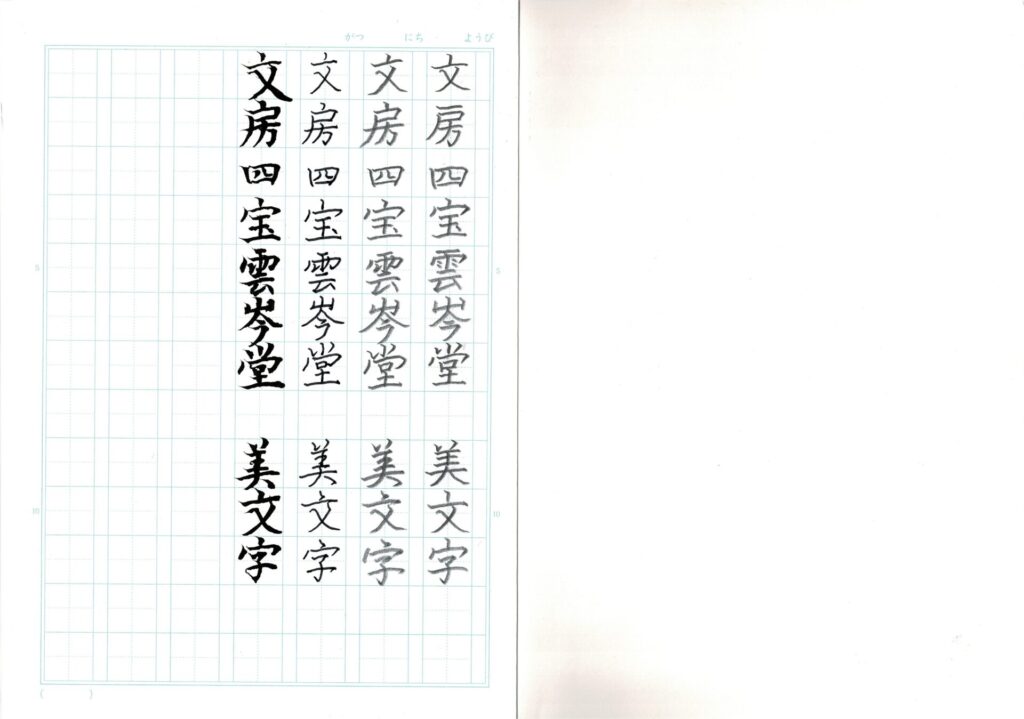 がつ にち ようび
文房四宝雲岑堂 美文字
文房四宝雲岑堂 美文字
文房四宝雲岑堂 美文字
文房四宝雲岑堂 美文字
5
5
10
10
( )